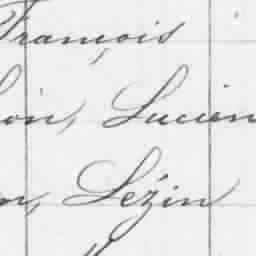 François
on, Lucien
n, Lézin